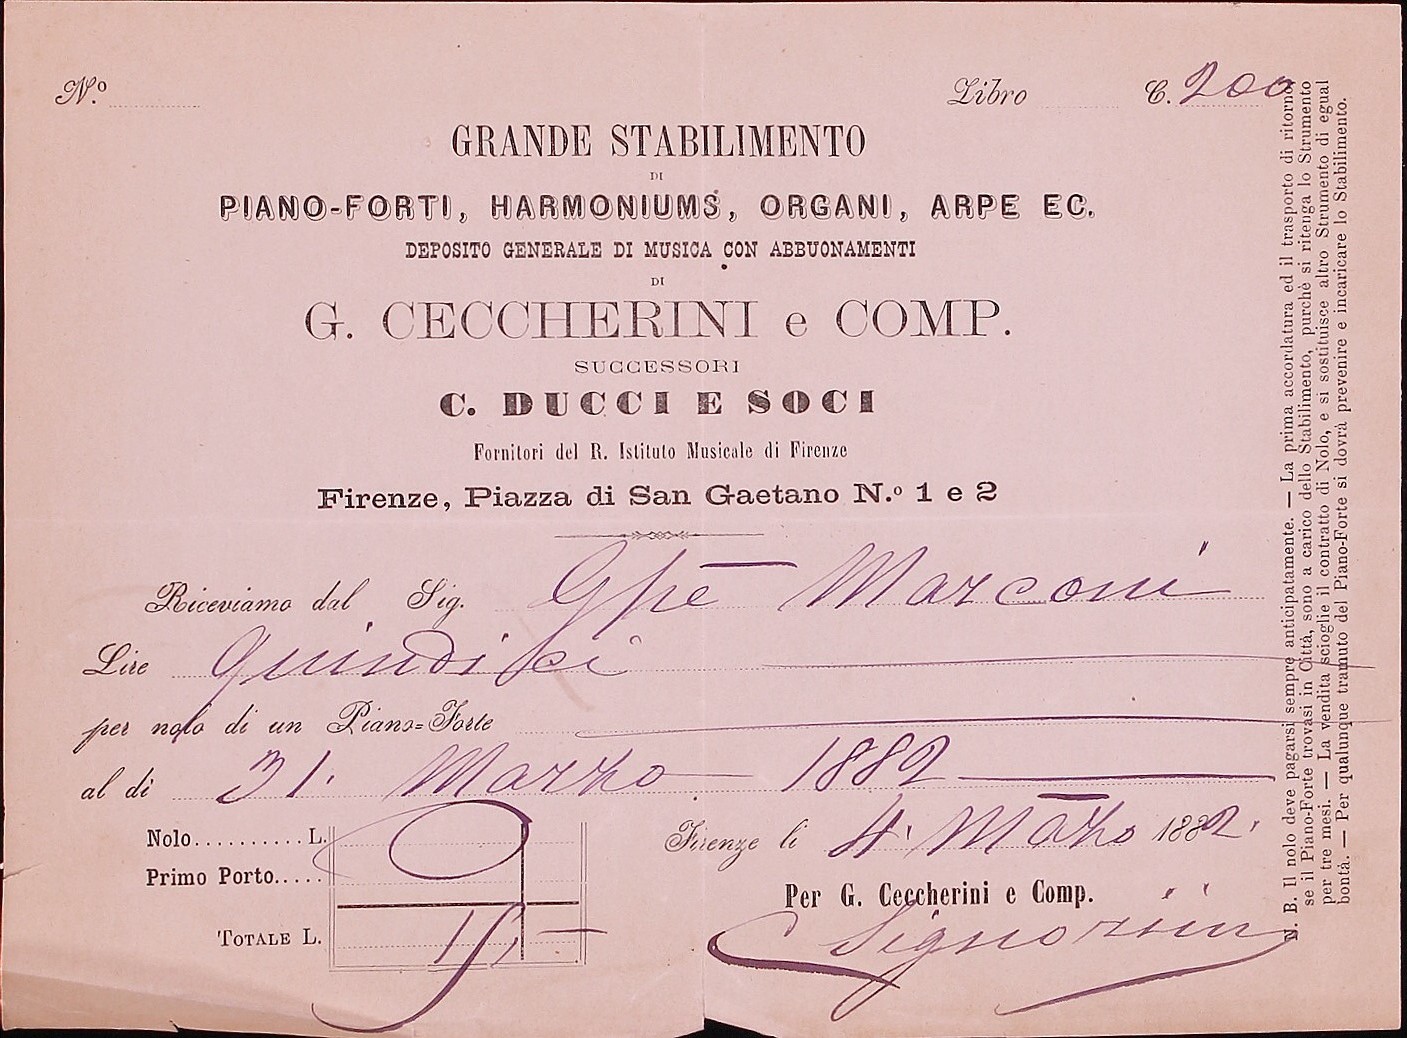 N.º
Libro C. 200
GRANDE STABILIMENTO
DI
PIANO-FORTI, HARMONIUMS, ORGANI, ARPE EC.
DEPOSITO GENERALE DI MUSICA CON ABBUONAMENTI
DI
G. CECCHERINI e COMP.
SUCCESSORI
C. DUCCI E SOCI
Fornitori del R. Istituto Musicale di Firenze
Firenze, Piazza di San Gaetano N.º 1 e 2
Riceviamo dal Sig. Gpe Marconi
Lire Quindici
per nolo di un Piano=Forte
al dì 31. Marzo 1882
Nolo.......... L.
Primo Porto.....
TOTALE L. 15,—
Firenze li 4. Marzo 1882.
Per G. Ceccherini e Comp.
Signorini
N. B. Il nolo deve pagarsi sempre anticipatamente. — La prima accordatura ed il trasporto di ritorno
se il Piano-Forte trovasi in Città, sono a carico dello Stabilimento, purchè si ritenga lo Strumento
per tre mesi. — La vendita scioglie il contratto di Nolo, e si sostituisce altro Strumento di egual
bontà. — Per qualunque tramuto del Piano-Forte si dovrà prevenire e incaricare lo Stabilimento.